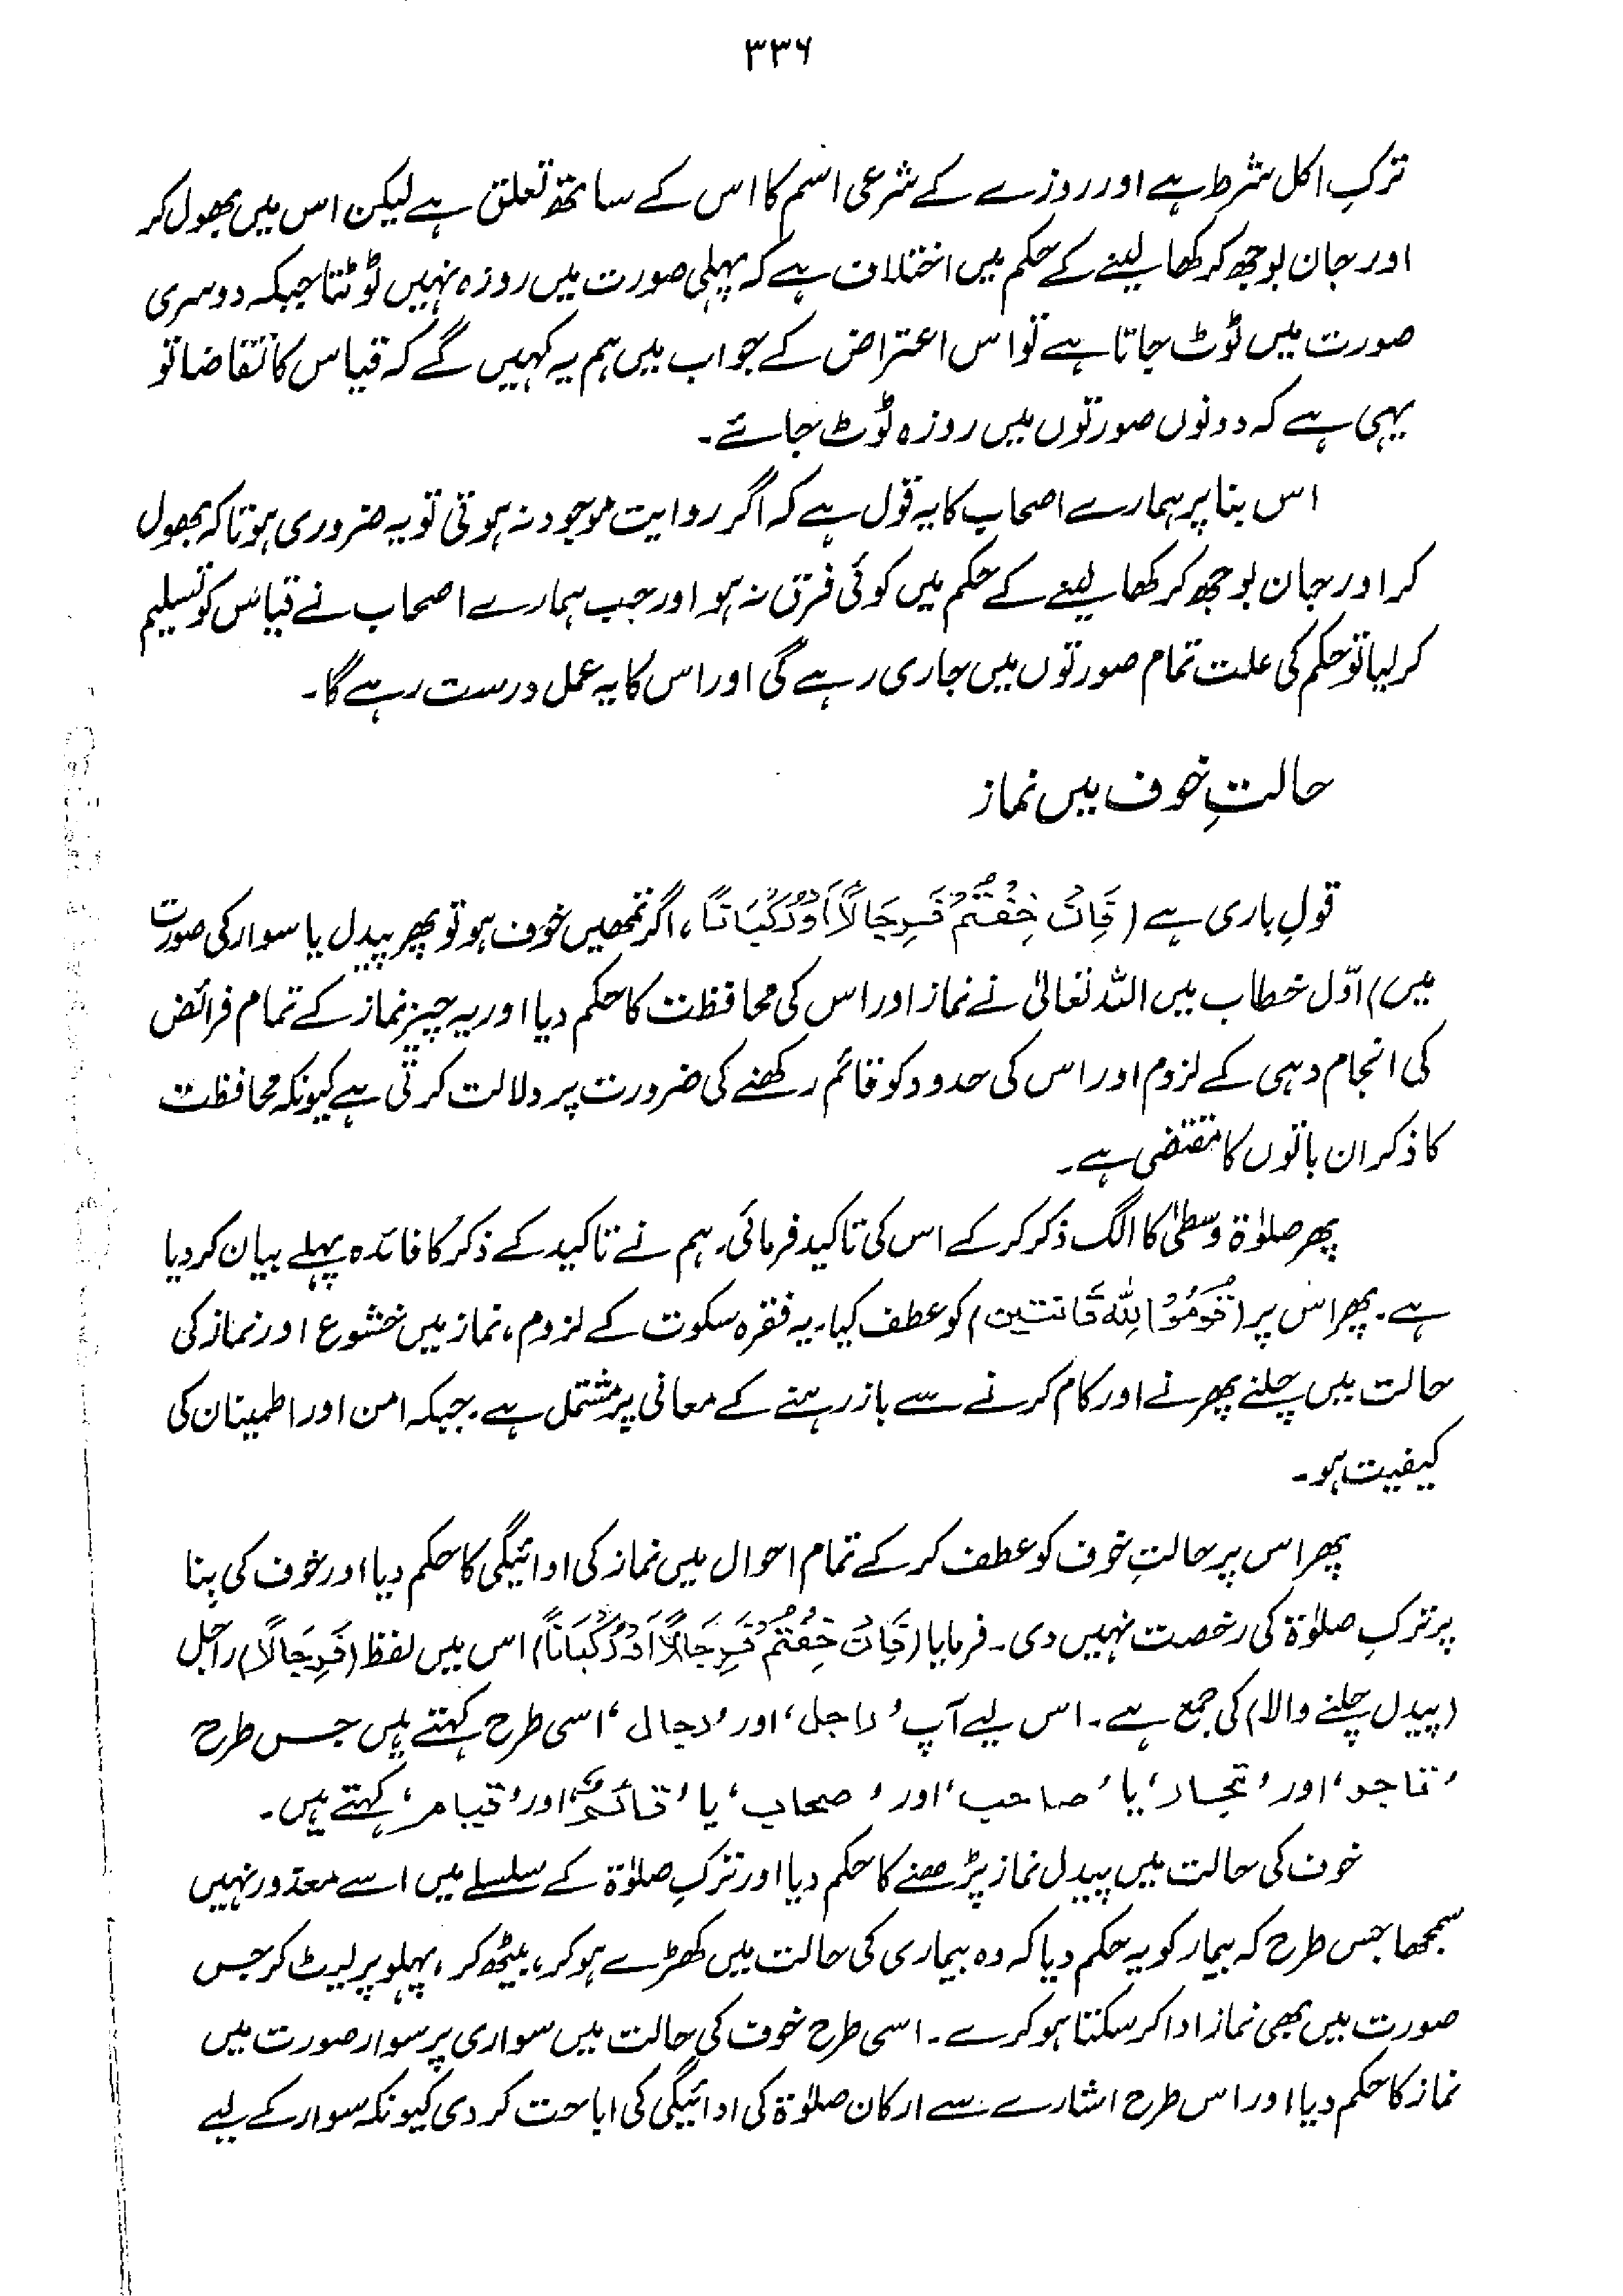 ۳۳۶
ترکِ اکل شرط ہے اور روزے کے شرعی اسم کا اس کے ساتھ تعلق ہے لیکن اس میں بھول کر
اور جان بوجھ کر کھا لینے کے حکم میں اختلاف ہے کہ پہلی صورت میں روزہ نہیں ٹوٹتا جبکہ دوسری
صورت میں ٹوٹ جاتا ہے تو اس اعتراض کے جواب میں ہم یہ کہیں گے کہ قیاس کا تقاضا تو
یہی ہے کہ دونوں صورتوں میں روزہ ٹوٹ جائے۔
اس بنا پر ہمارے اصحاب کا یہ قول ہے کہ اگر روایت موجود نہ ہوتی تو یہ ضروری ہوتا کہ بھول
کر اور جان بوجھ کر کھا لینے کے حکم میں کوئی فرق نہ ہو اور جب ہمارے اصحاب نے قیاس کو تسلیم
کر لیا تو حکم کی علت تمام صورتوں میں جاری رہے گی اور اس کا یہ عمل درست رہے گا۔
حالتِ خوف میں نماز
قولِ باری ہے (فَاِنْ خِفْتُمْ فَرِجَالًا اَوْ رُكْبَانًا، اگر تمھیں خوف ہو تو پھر پیدل یا سوار کی صورت
میں) اوّل خطاب میں اللہ تعالیٰ نے نماز اور اس کی محافظت کا حکم دیا اور یہ چیز نماز کے تمام فرائض
کی انجام دہی کے لزوم اور اس کی حدود کو قائم رکھنے کی ضرورت پر دلالت کرتی ہے کیونکہ محافظت
کا ذکر ان باتوں کا مقتضی ہے۔
پھر صلوٰۃ وسطیٰ کا الگ ذکر کر کے اس کی تاکید فرمائی۔ ہم نے تاکید کے ذکر کا فائدہ پہلے بیان کر دیا
ہے۔ پھر اس پر (قُوْمُوْا لِلّٰهِ قَانتین) کو عطف کیا۔ یہ فقرہ سکوت کے لزوم، نماز میں خشوع اور نماز کی
حالت میں چلنے پھرنے اور کام کرنے سے باز رہنے کے معانی پر مشتمل ہے۔ جبکہ امن اور اطمینان کی
کیفیت ہو۔
پھر اس پر حالتِ خوف کو عطف کر کے تمام احوال میں نماز کی ادائیگی کا حکم دیا اور خوف کی بنا
پر ترکِ صلوٰۃ کی رخصت نہیں دی۔ فرمایا (فَاِنْ خِفْتُمْ فَرِجَالًا اَوْ رُكْبَانًا) اس میں لفظ (فَرِجَالًا) راجل
(پیدل چلنے والا) کی جمع ہے۔ اس لیے آپ ’راجل‘ اور ’رجال‘ اسی طرح کہتے ہیں جس طرح
’تاجر‘ اور ’تجار‘ یا ’صاحب‘ اور ’صحاب‘ یا ’قائم‘ اور ’قیام‘ کہتے ہیں۔
خوف کی حالت میں پیدل نماز پڑھنے کا حکم دیا اور ترکِ صلوٰۃ کے سلسلے میں اسے معذور نہیں
سمجھا جس طرح کہ بیمار کو یہ حکم دیا کہ وہ بیماری کی حالت میں کھڑے ہو کر، بیٹھ کر، پہلو پر لیٹ کر جس
صورت میں بھی نماز ادا کر سکتا ہو کرے۔ اسی طرح خوف کی حالت میں سواری پر سوار صورت میں
نماز کا حکم دیا اور اس طرح اشارے سے ارکان صلوٰۃ کی ادائیگی کی اباحت کر دی کیونکہ سوار کے لیے